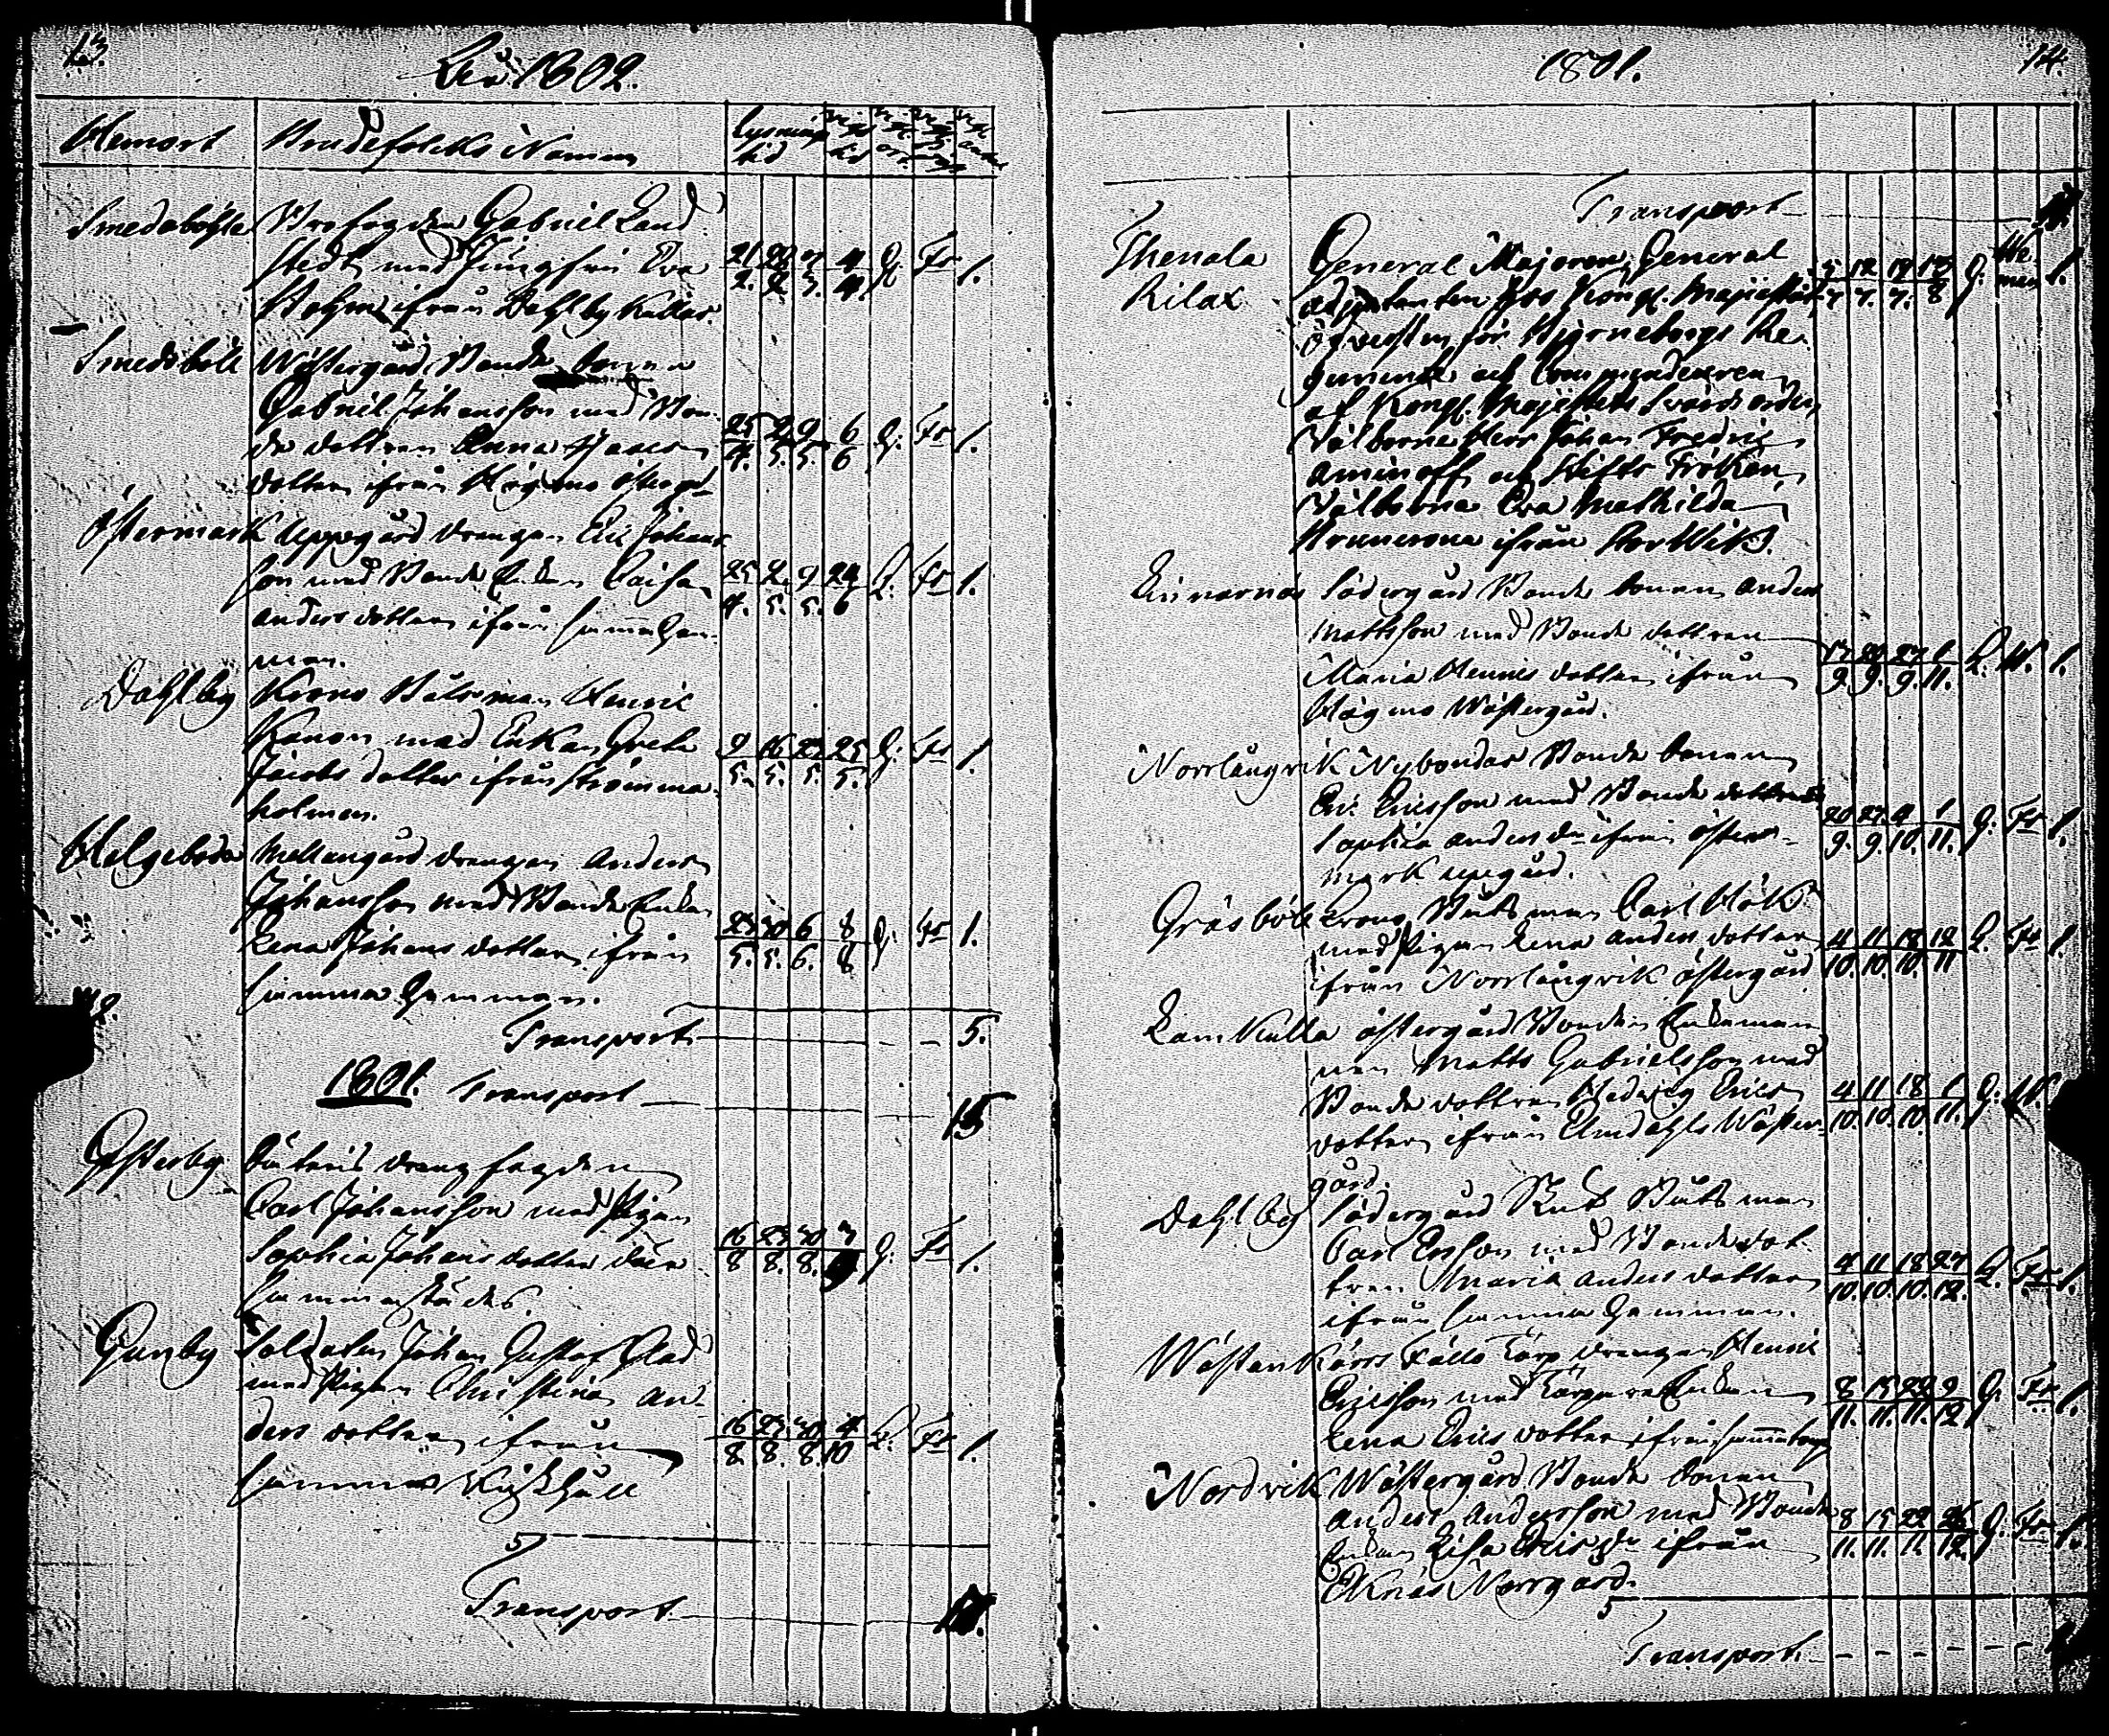 13.
År 1802.
Hemort Brudefolcks Namn lysnings tid
Smedabölle Brofogden Gabriel Land
stedt med Jungfru Eva
Bohm ifrån Dahlby Kullas.
21 28 7 4 G. Fr 1.
2. 2. 3. 4.
Smedsböle Wästergård Bonde sonen
Gabriel Johansson med Bon
de dottren Anna Isaacs
dotter ifrån Högmo Östergd
25 2 9 6 G. Fr 1.
4. 5. 5. 6
Östermark Uppgård drengen Eric Johans
son med Bonde Enkan Caisa
Anders dotter ifrån samma hem
man.
25 2 9 24 L. Fr 1.
4. 5. 5. 6
Dahlby Krono Båtsman Henric
Kanon med Enkan Greta
Jacobs dotter ifrån Strömma
holmen.
9 16 23 25 G. Fr 1.
5. 5. 5. 5.
Helgeboda Mellangård drengen Anders
Johansson med Bonde Enkan
Lena Johans dotter ifrån
samma Hemman.
23 30 6 8 G. Fr 1.
5. 5. 6. 8
Transport 5.
1801. Transport 15
Österby Säteris dreng fogden
Carl Johansson med Pigan
Sophia Johans dotter
sammastädes.
16 23 30 G. Fr 1.
8 8. 8.
Gunby Soldaten Johan Gustaf Glad
med Pigan Christina An
ders dotter ifrån
samma
16 23 30 4 L. Fr 1.
8. 8. 8. 10
5
Transport
1801. 14.
Transport
Thenala General Majoren, General
Rilax adjutanten hos Kongl. Majestät
öfversten för Björneborgs Re
gemente och Commendeuren
af Kongl. Majestets Svärds orden
Välborne Herr Johan Fredric
Aminoff och Stifts Fröken
Välborna Eva Mathilda
ifrån
5 12 19 12 G. 1
7. 7. 7. 8
Linnarnäs Södergård Bonde sonen Anders
Mattsson med Bonde dottren
Maria Henrics dotter ifrån
Högmo Wästergård.
13 20 27 1 L. W. 1.
9. 9. 9. 11.
Norrlångvik Nybondas Bonde sonen
Eric Ericsson med Bonde dottren
Sophia Anders dr ifrån Öster
mark uppgård.
20 27 4 1 G. Fr 1.
9. 9. 10. 11.
Gräsböle Crono Båtsman Carl Hök
med Pigan Lena Anders dotter
ifrån Norrlångvik Östergård
4 11 18 12 L. Fr 1.
10. 10. 10. 11
Lamkulla Östergård Bonden Enkeman
nen Matts Gabrielsson med
Bonde dottren Hedwig Erics
dotter ifrån Wäster
gård.
4 11 18 1 G. W.
10. 10. 10. 11.
Dahlby Södergård Båtsman
Carl Ersson med Bonde dot
tren Maria Anders dotter
ifrån samma Hemman.
4 11 18 27 L. Fr 1.
10. 10. 10. 12.
Wästankärrs Torp drengen Henric
Ericsson med Enkan
Lena Erics dotter ifrån samma torp
8 15 22 9 G. Fr 1.
11. 11. 11. 12
Nordvik Wästergård Bonde sonen
Anders Andersson med Bonde
Enkan Lisa Erics dr ifrån
Eknäs Norrgård.
8 15 22 26 G. Fr 1.
11. 11. 11. 12.
5
Transport